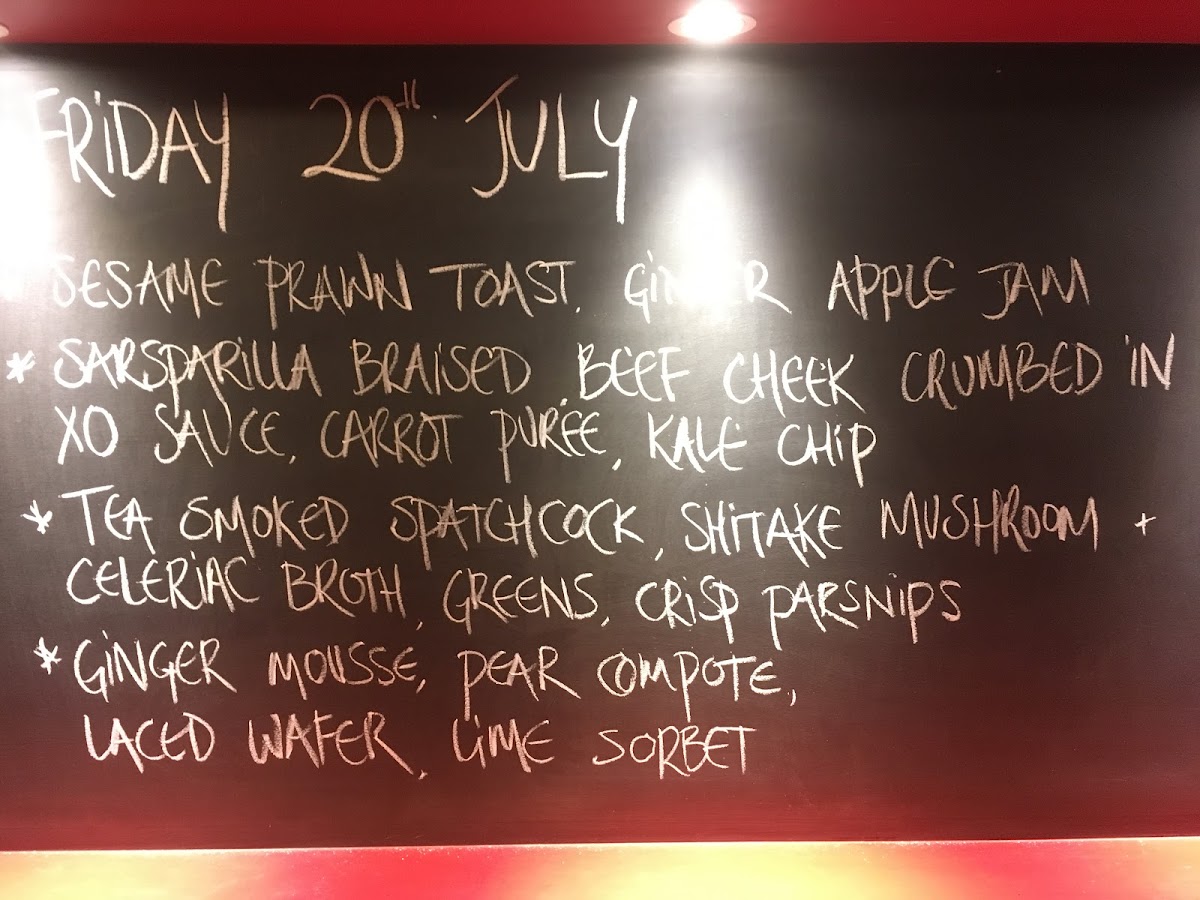 FRiDAY 20th JULY
SESAME PRAWN TOAST, GiNGER APPLE JAM
* SARSPARiLLA BRAiSED BEEF CHEEK CRUMBED iN
XO SAUCE, CARROT PURÉE, KALE CHiP
* TEA SMOKED SPATCHCOCK, SHiTAKE MUSHROOM +
CELERiAC BROTH, GREENS, CRiSP PARSNiPS
* GiNGER MOUSSE, PEAR COMPOTE,
LACED WAFER, LiME SORBET